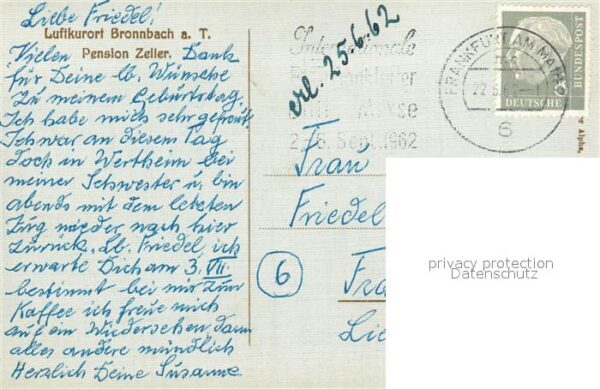 Liebe Friedel!
Luftkurort Bronnbach a. T.
Pension Zeller.
Vielen Dank
für Deine lb. Wünsche
zu meinem Geburtstag,
Ich habe mich sehr gefreut.
Ich war an diesem Tag
doch in Wertheim bei
meiner Schwester u. bin
abends mit dem letzten
Zug wieder nach hier
zurück. Lb. Friedel, ich
erwarte Dich am 3. VII
bestimmt bei mir zum
Kaffee ich freue mich
auf ein Wiedersehen dann
alles andere mündlich
Herzlich Deine Susanne
erl. 25.6.62
Internationale
Frankfurter
Messe
2.-6. Sept. 1962
FRANKFURT AM MAIN
22.6.62
6
DEUTSCHE
BUNDESPOST
Frau
Friedel
6
Fra
Lie
privacy protection
Datenschutz